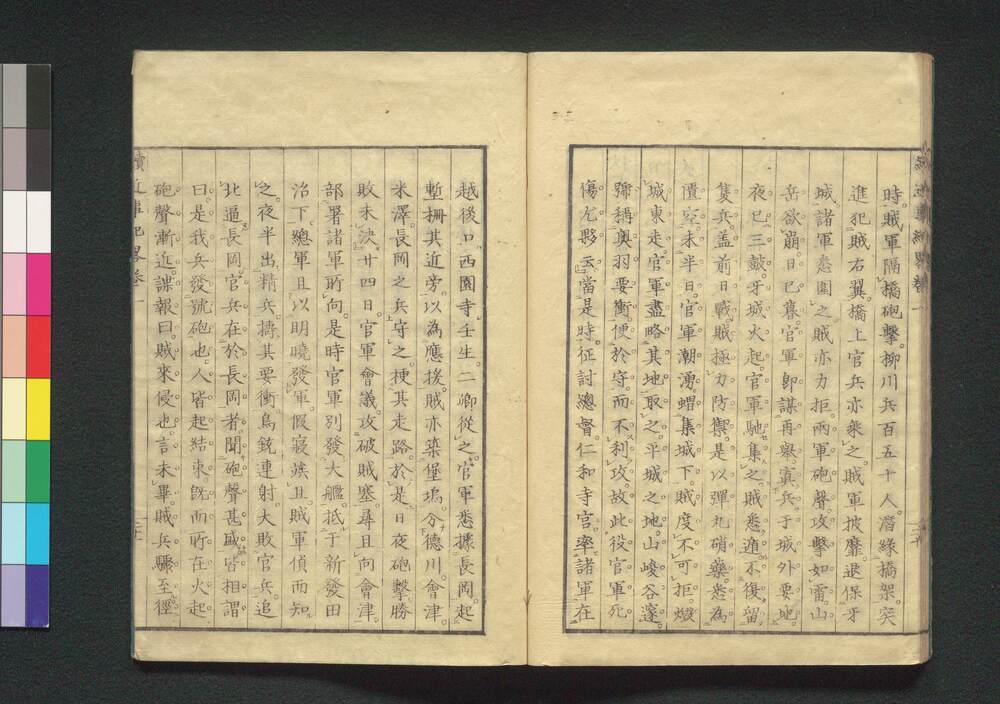 時。賊軍隔橋砲擊。柳川兵百五十人。潛緣橋架突
進犯賊右翼。橋上官兵亦乘之。賊軍披靡。退保牙
城。諸軍悉圍之。賊亦力拒。兩軍砲聲。攻擊如雷。山
岳欲崩。日已暮。官軍即謀再舉。寘兵于城外要地。
夜已三鼓。牙城火起。官軍馳集之。賊悉遁。不復留
隻兵。蓋前日戰。賊極力防禦。是以彈丸硝藥悉為
匱空。未半日。官軍潮湧蝟集城下。賊度不可拒。燬
城東走。官軍盡略其地取之。平城之地。山峻谷邃。
號稱奥羽要衝。便於守。而不利攻。故此役官軍死
傷尤夥云。當是時。征討總督仁和寺宮。率諸軍在
越後口。西園寺壬生二卿從之。官軍悉據長岡。起
塹柵其近旁。以為應援。賊亦築堡塢。分德川會津
米澤長岡之兵守之。梗其走路。於是日夜砲擊。勝
敗未決。廿四日。官軍會議。攻破賊塞。尋且向會津。
部署諸軍所向。是時官軍別發大艦。抵于新發田
治下。總軍且以明曉發軍。假寢矣。且賊軍偵而知
之。夜半出精兵。擣其要衝。鳥銃連射。大敗官兵。追
北逼長岡。官兵在於長岡者。聞砲聲甚盛。皆相謂
曰。是我兵發號砲也。人皆起結束。既而所在火起。
砲聲漸近。諜報曰。賊來侵也。言未畢。賊兵驟至。徑
續近事紀畧卷一